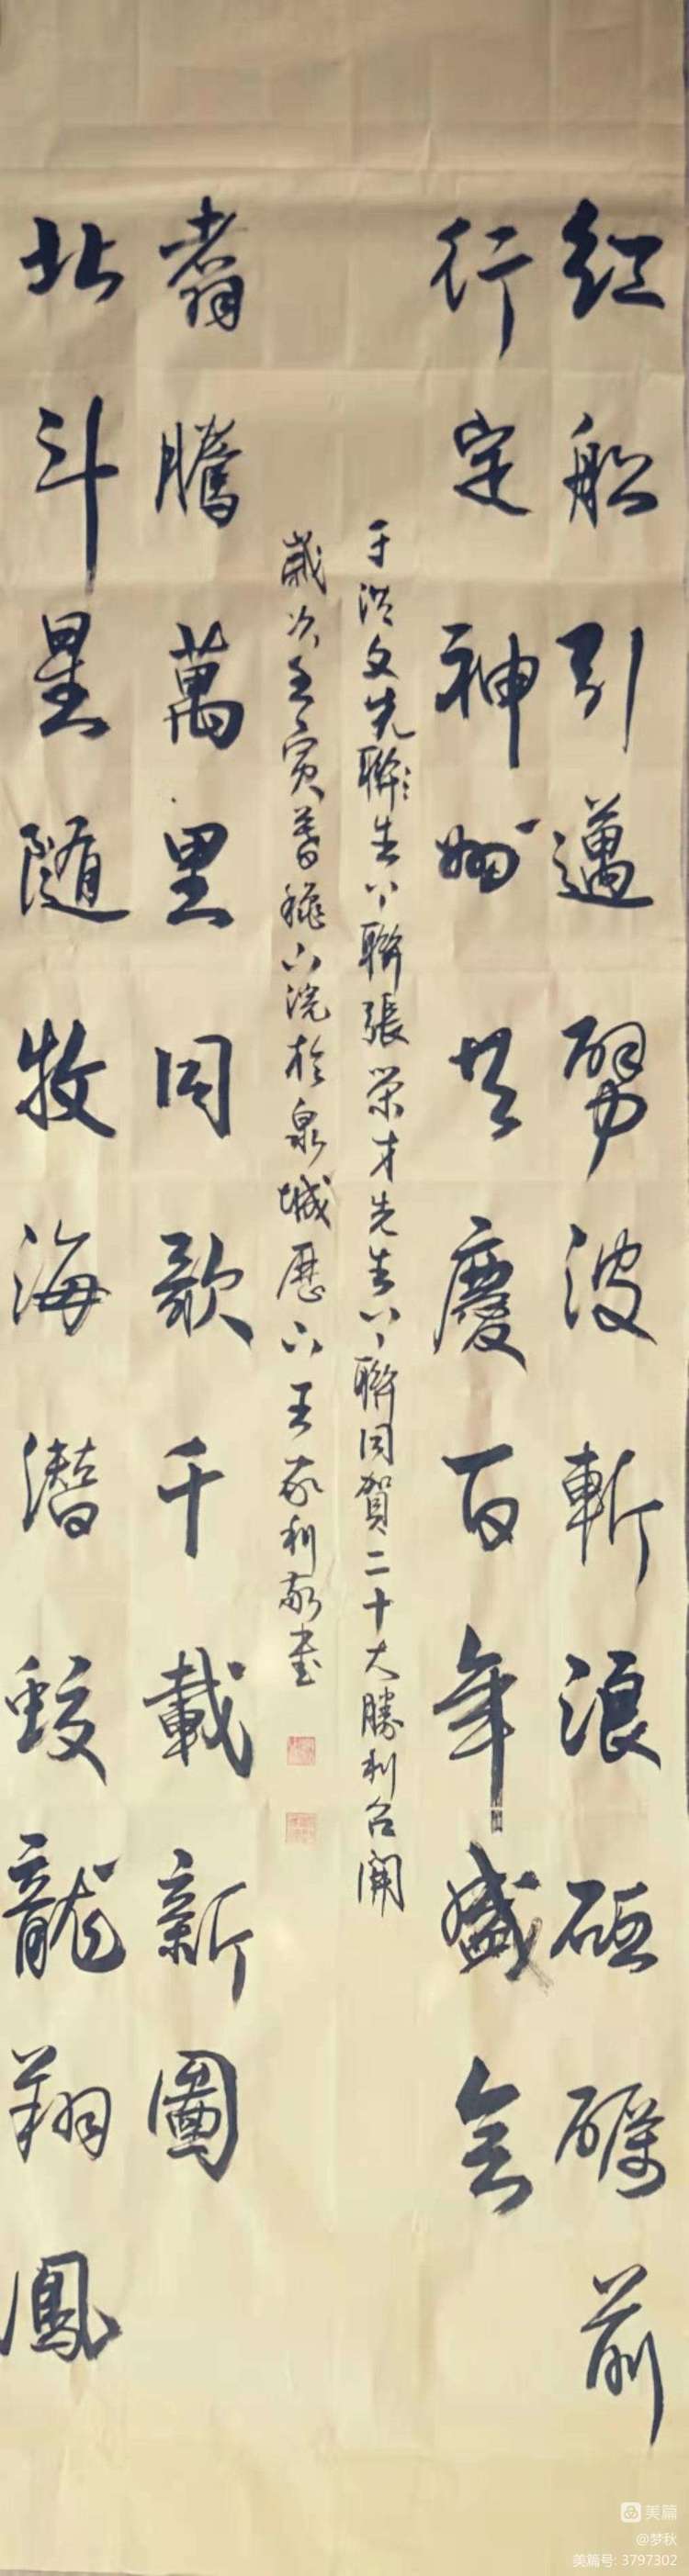 红船引邁劈波斬浪砥礪前
行定神州共慶百年盛会
于洪文先生上聯張栄才先生下聯同賀二十大勝利召開
歲次壬寅暮穐下浣於泉城歷下王敬利敬書
北斗星随牧海潜蛟龍翔鳳
翥騰萬里同歌千載新圖
美篇
@梦秋
美篇号: 3797302